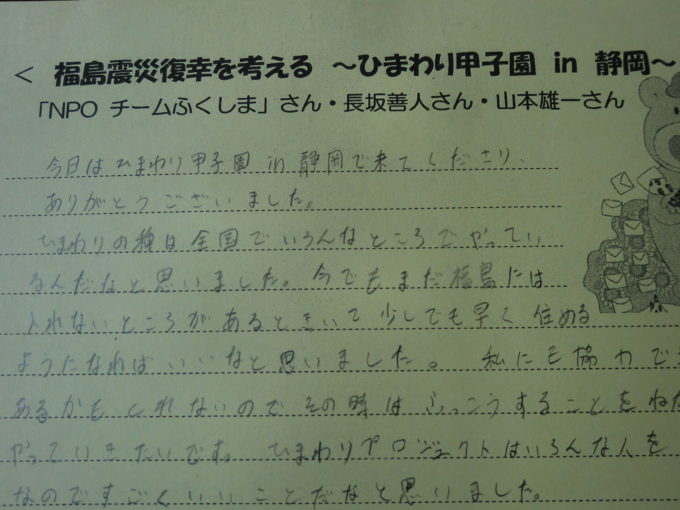 < 福島震災復幸を考える ~ひまわり甲子園 in 静岡~
「NPO チームふくしま」さん・長坂善人さん・山本雄一さん
今日はひまわり甲子園in静岡で来てくださり、
ありがとうございました。
ひまわりの種は全国でいろんなところでやってい
るんだなと思いました。今でもまだ福島には
入れないところがあるときいて少しでも早く住める
ようになればいいなと思いました。私にも協力で
あるかもしれないのでその時はふっこうすることをねが
やっていきたいです。ひまわりプロジェクトはいろんな人を
なのですごくいいことだなと思いました。